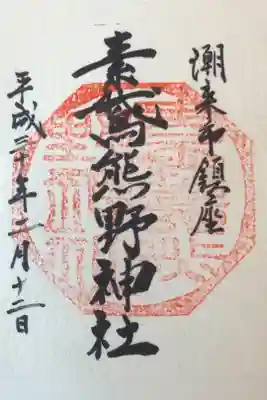 潮来市鎮座
素鵞熊野神社
平成三十年二月十二日